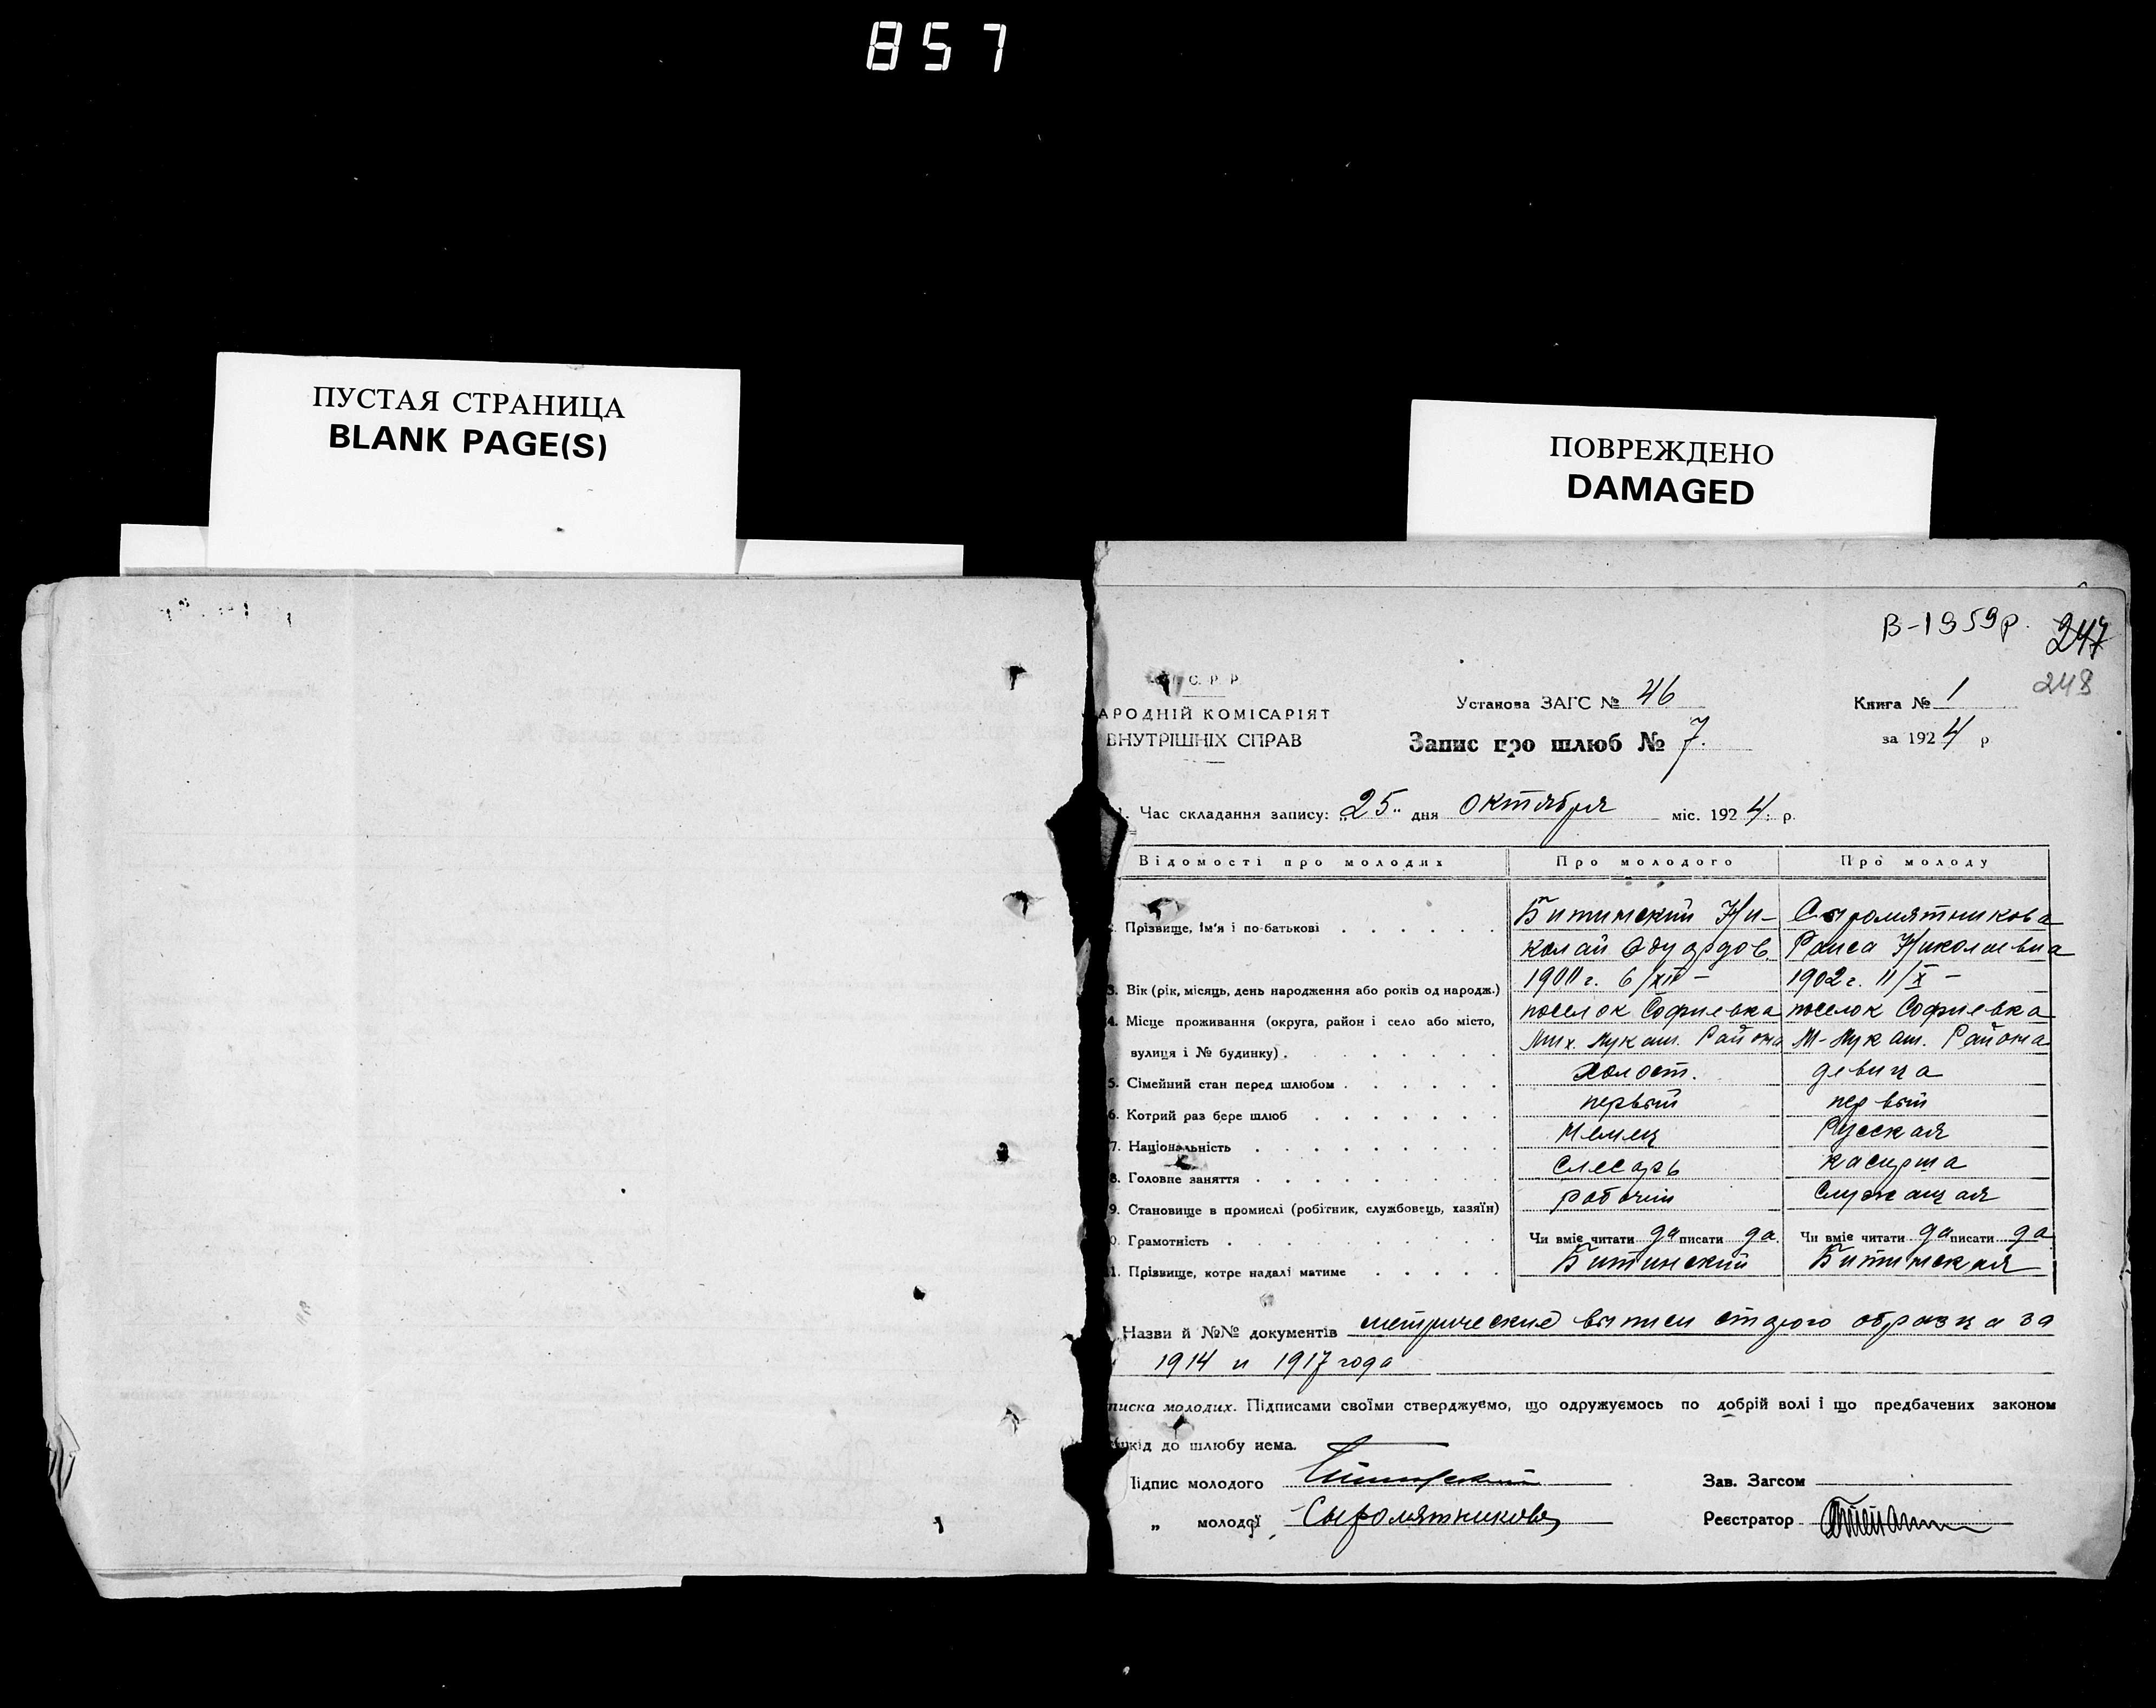 857
ПУСТАЯ СТРАНИЦА
BLANK PAGE(S)
ПОВРЕЖДЕНО
DAMAGED
В-1959р. 247
248
С. Р. Р.
АРОДНІЙ КОМІСАРІЯТ
ВНУТРІШНІХ СПРАВ
Установа ЗАГС № 46
Книга № 1
Запис про шлюб № 7.
за 1924 р
1. Час складання запису: „25" дня октября міс. 1924. р.
Відомості про молодих Про молодого Про молоду
2. Прізвище, ім'я і по-батькові Битинский Ни- Сыромятникова
колай Эдуардов. Раиса Николаевна
3. Вік (рік, місяць, день народження або років од народж.) 6/XII – 1902 г. 11/X –
4. Місце проживання (округа, район і село або місто, поселок Софиевка поселок Софиевка
вулиця і № будинку). Района М- Района
5. Сімейний стан перед шлюбом холост. девица
6. Котрий раз бере шлюб первый первый
7. Національність Немец Русская
8. Головне заняття слесарь касирша
9. Становище в промислі (робітник, службовець, хазяїн) рабочий Служащая
0. Грамотність Чи вміє читати да писати да. Чи вміє читати да писати да
1. Прізвище, котре надалі матиме Битинский Битинская
Назви й №№ документів метрические выписи старого образца за
1914 и 1917 года
писка молодих. Підписами своїми стверджуємо, що одружуємось по добрій волі і що предбачених законом
шкід до шлюбу нема.
Підпис молодого
Зав. Загсом
„ молодої Сыромятникова
Реєстратор